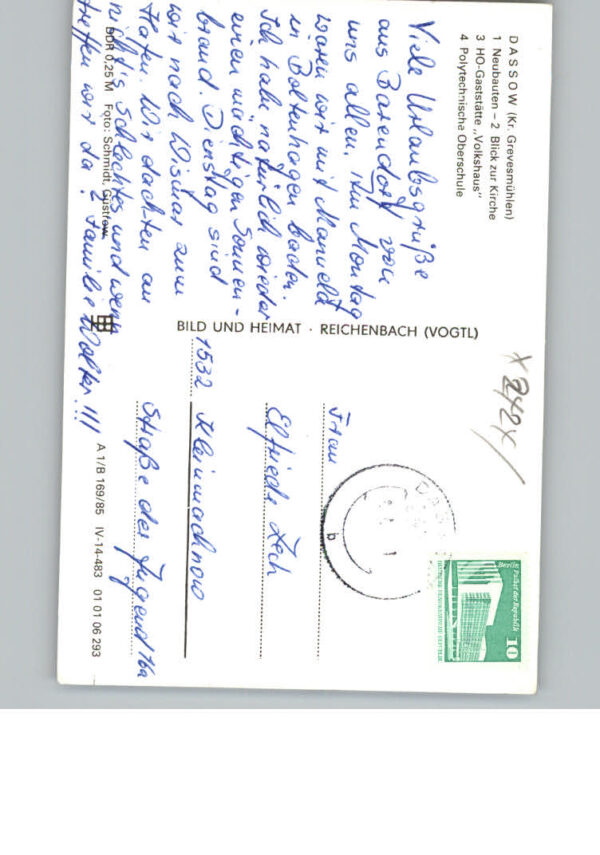 DASSOW (Kr. Grevesmühlen)
1 Neubauten – 2 Blick zur Kirche
3 HO-Gaststätte „Volkshaus"
4 Polytechnische Oberschule
Viele Urlaubsgrüße
aus Barendorf von
uns allen. Am Montag
waren wir mit Manuela
in Boltenhagen baden.
Ich habe natürlich wieder
einen mächtigen Sonnen-
brand. Dienstag sind
wir nach Wismar zum
Hafen. Wir dachten an
nichts Schlechtes und wenn
treffen wir da? Familie Walter!!!
DDR 0,25 M Foto: Schmidt, Güstrow
BILD UND HEIMAT · REICHENBACH (VOGTL)
Frau
Elfriede Zech
1532 Kleinmachnow
Straße der Jugend 16a
A 1/B 169/85 IV-14-483 01 01 06 293
Berlin, Palast der Republik
10
DEUTSCHE DEMOKRATISCHE REPUBLIK
b